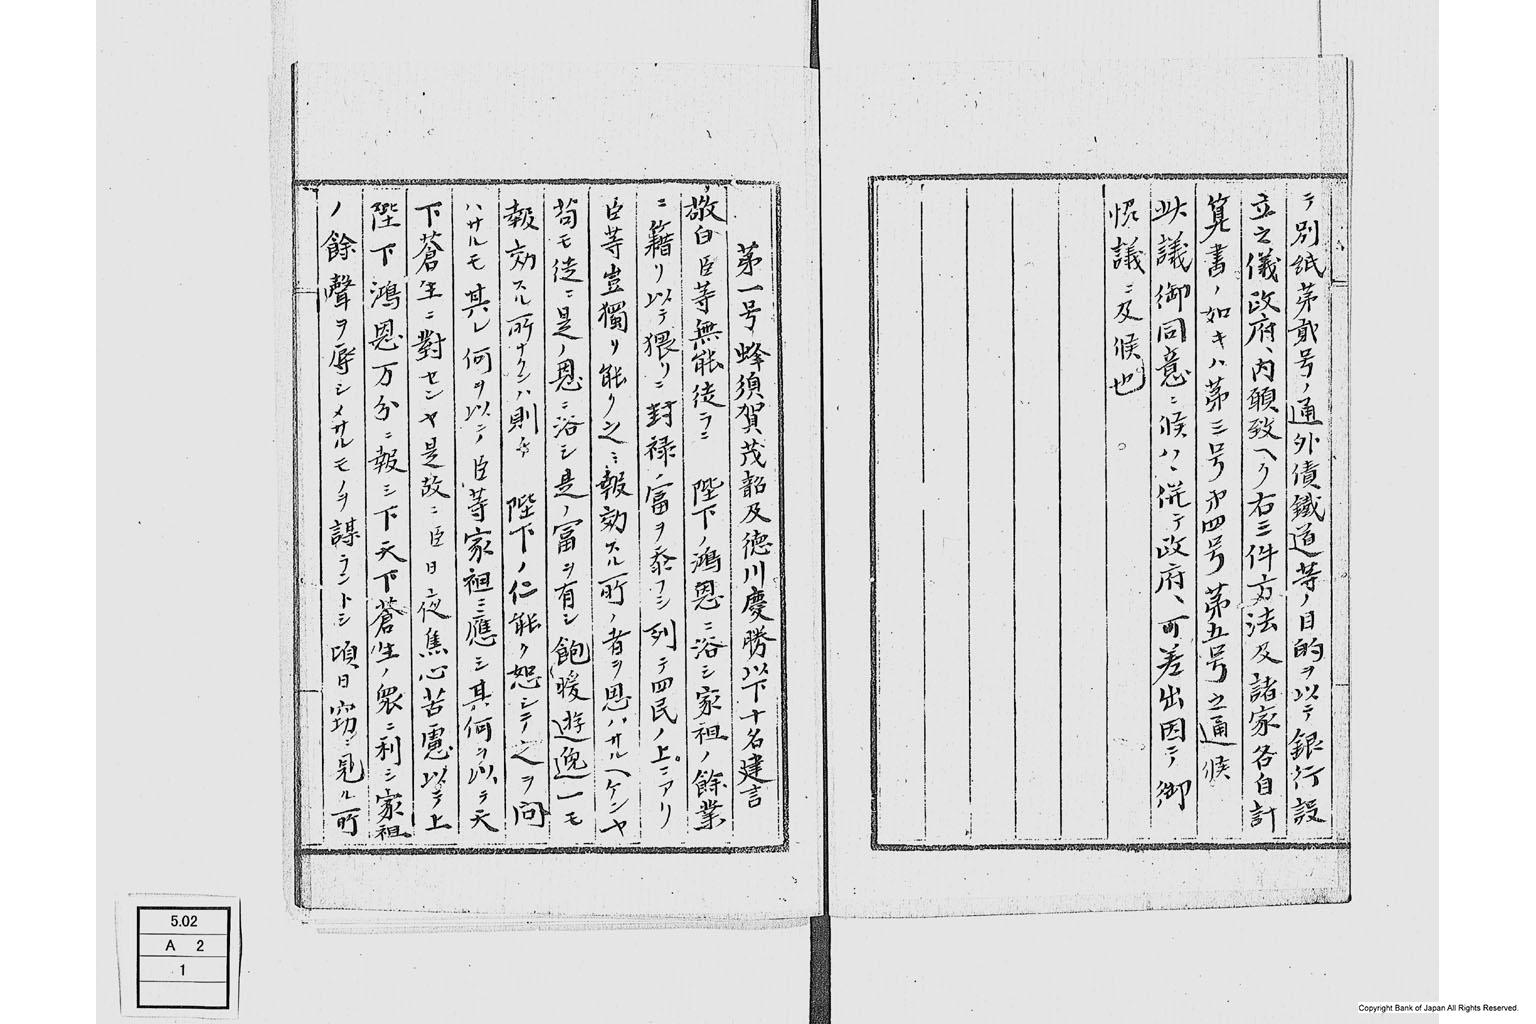 テ別紙第貳号ノ通外債鐵道等ノ目的ヲ以テ銀行設
立之儀政府ヘ内願致ヘク右三件方法及諸家各自計
算書ノ如キハ第三号第四号第五号之通候
此議御同意ニ候ハヽ併テ政府ヘ可差出因テ御
協議ニ及候也。
第一号蜂須賀茂韶及徳川慶勝以下十名建言
敬白臣等無能徒ラニ 陛下ノ鴻恩ニ浴シ家祖ノ餘業
ニ籍リ以テ猥リニ封禄ノ富ヲ忝フシ列テ四民ノ上ニアリ
臣等豈獨リ能ク之ニ報効スル所ノ者ヲ思ハサルヘケンヤ
苟モ徒ニ是ノ恩ニ浴シ是ノ富ヲ有シ飽暖遊逸一モ
報効スル所ナクンハ則 陛下ノ仁能ク恕シテ之ヲ問
ハサルモ其レ何ヲ以テ臣等家祖ニ應シ其何ヲ以テ天
下蒼生ニ對センヤ是故ニ臣日夜焦心苦慮以テ上
陛下鴻恩万分ニ報シ下天下蒼生ノ衆ニ利シ家祖
ノ餘聲ヲ辱シメサルモノヲ謀ラントシ頃日窃ニ見ル所
5.02
A 2
1
Copyright Bank of Japan All Rights Reserved.